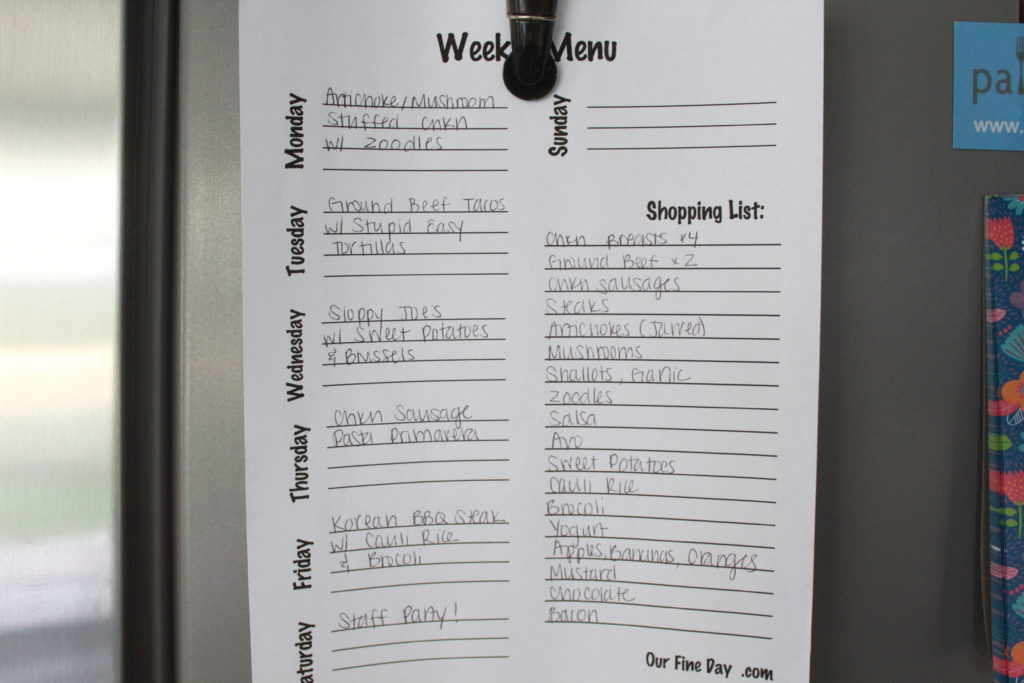 Weekly Menu
Monday
Artichoke/Mushroom
Stuffed Chkn
w/ Zoodles
Tuesday
Ground Beef Tacos
w/ Stupid Easy
Tortillas
Wednesday
Sloppy Joe's
w/ Sweet Potatoes
& Brussels
Thursday
Chkn Sausage
Pasta Primavera
Friday
Korean BBQ Steak
w/ Cauli Rice
& Brocoli
aturday
Staff Party!
Sunday
Shopping List:
Chkn Breasts x4
Ground Beef x2
Chkn Sausages
Steaks
Artichokes (Jarred)
Mushrooms
Shallots, Garlic
Zoodles
Salsa
Avo
Sweet Potatoes
Cauli Rice
Brocoli
Yogurt
Apples, Bananas, Oranges
Mustard
Chocolate
Bacon
Our Fine Day .com
pa
www.